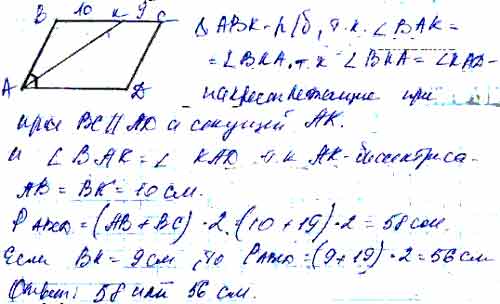 B 10 K 9 C
A D
Δ ABK - р/б, т.к. ∠BAK =
= ∠BKA, т.к ∠BKA = ∠KAD -
накрестлежащие при
прям BC || AD и секущей AK.
и ∠BAK = ∠ KAD т.к AK - биссектриса
AB = BK = 10 см.
P = (AB + BC) · 2 = (10 + 19) · 2 = 58 см.
Если BK = 9 см, то P = (9 + 19) · 2 = 56 см
Ответ: 58 или 56 см.